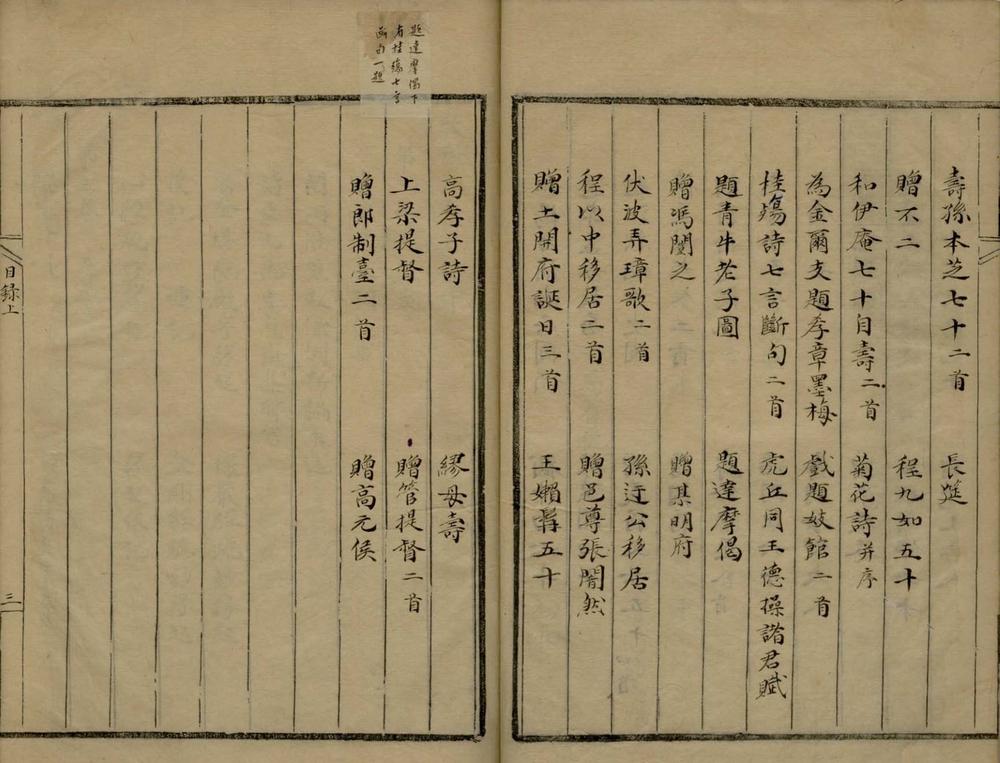 壽孫本芝七十二首 長筵
贈不二 程九如五十
和伊庵七十自壽二首 菊花詩并序
為金爾支題季章墨梅 戲題妓館二首
桂殤詩七言斷句二首 虎丘同王德操諸君賦
題青牛老子圖 題達摩偈
贈馮閏之 贈某明府
伏波弄璋歌二首 孫迂公移居
程以中移居二首 贈邑尊張闇然
贈土開府誕日三首 王嬾髯五十
題達摩偈下
有桂殤七言
函句一題
高孝子詩 繆母壽
上梁提督 贈管提督二首
贈郎制臺二首 贈高元侯
目録上
三